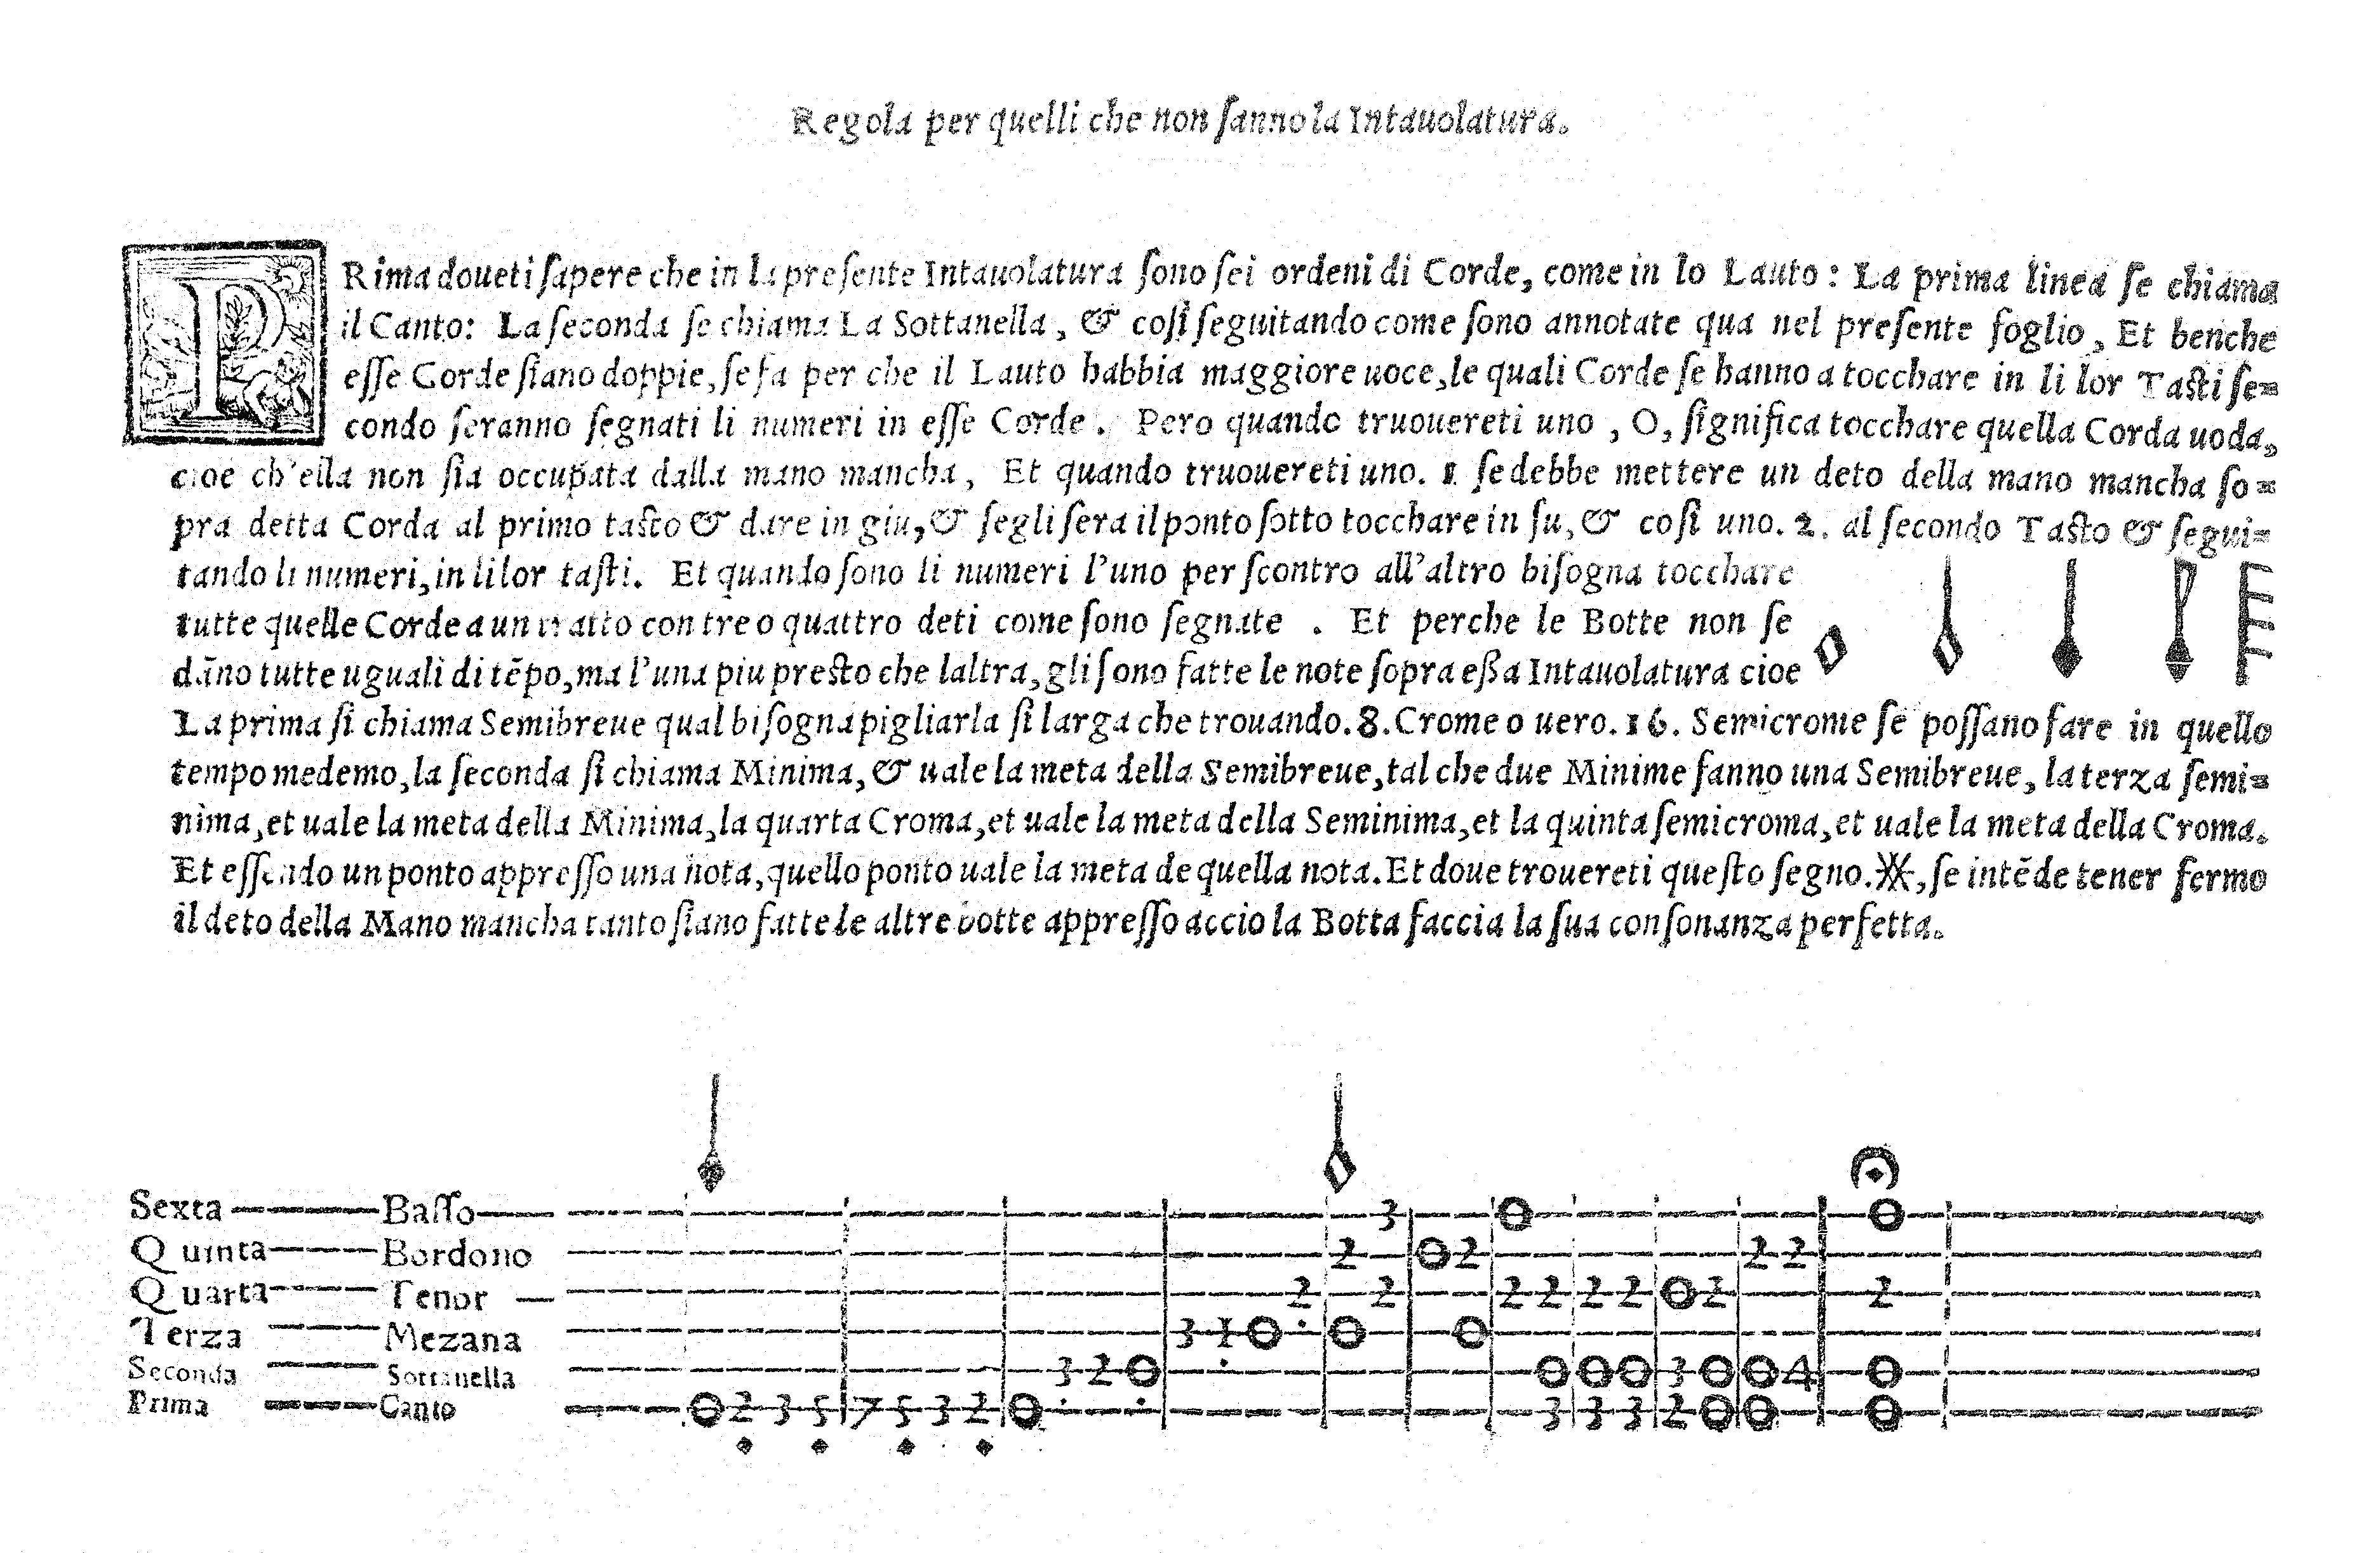 Regola per quelli che non ſanno la Intauolatura.
PRima doueti ſapere che in la preſente Intauolatura ſono ſei ordeni di Corde, come in lo Lauto : La prima linea ſe chiama
il Canto: La ſeconda ſe chiama La Sottanella, & coſi ſeguitando come ſono annotate qua nel preſente foglio, Et benche
eſſe Corde ſiano doppie, ſe fa per che il Lauto habbia maggiore uoce, le quali Corde ſe hanno a tocchare in li lor Taſti ſe=
condo ſeranno ſegnati li numeri in eſſe Corde. Pero quando truouereti uno, O, ſignifica tocchare quella Corda uoda,
cioe ch'ella non ſia occupata dalla mano mancha, Et quando truouereti uno. 1 ſe debbe mettere un deto della mano mancha ſo=
pra detta Corda al primo taſto & dare in giu, & ſegli ſera il ponto ſotto tocchare in ſu, & coſi uno. 2. al ſecondo Taſto & ſegui=
tando li numeri, in li lor taſti. Et quando ſono li numeri l'uno per ſcontro all'altro biſogna tocchare
tutte quelle Corde a un tratto con tre o quattro deti come ſono ſegnate. Et perche le Botte non ſe
dāno tutte uguali di tēpo, ma l'una piu preſto che laltra, gli ſono fatte le note ſopra eßa Intauolatura cioe
La prima ſi chiama Semibreue qual biſogna pigliarla ſi larga che trouando. 8. Crome o uero. 16. Semicrome ſe poſſano fare in quello
tempo medemo, la ſeconda ſi chiama Minima, & uale la meta della Semibreue, tal che due Minime fanno una Semibreue, la terza ſemi=
nima, et uale la meta della Minima, la quarta Croma, et uale la meta della Seminima, et la quinta ſemicroma, et uale la meta della Croma.
Et eſſendo un ponto appreſſo una nota, quello ponto uale la meta de quella nota. Et doue trouereti queſto ſegno. , ſe intēde tener fermo
il deto della Mano mancha tanto ſiano fatte le altre botte appreſſo accio la Botta faccia la ſua conſonanza perfetta.
Sexta Baſſo 3 0 0
Quinta Bordono 2 0 2 2 2
Quarta Tenor 2 2 2 2 2 2 0 2 2
Terza Mezana 3 1 0 0 0
Seconda Sottanella 3 2 0 0 0 0 3 0 0 4 0
Prima Canto 0 2 3 5 7 5 3 2 0 3 3 3 2 0 0 0